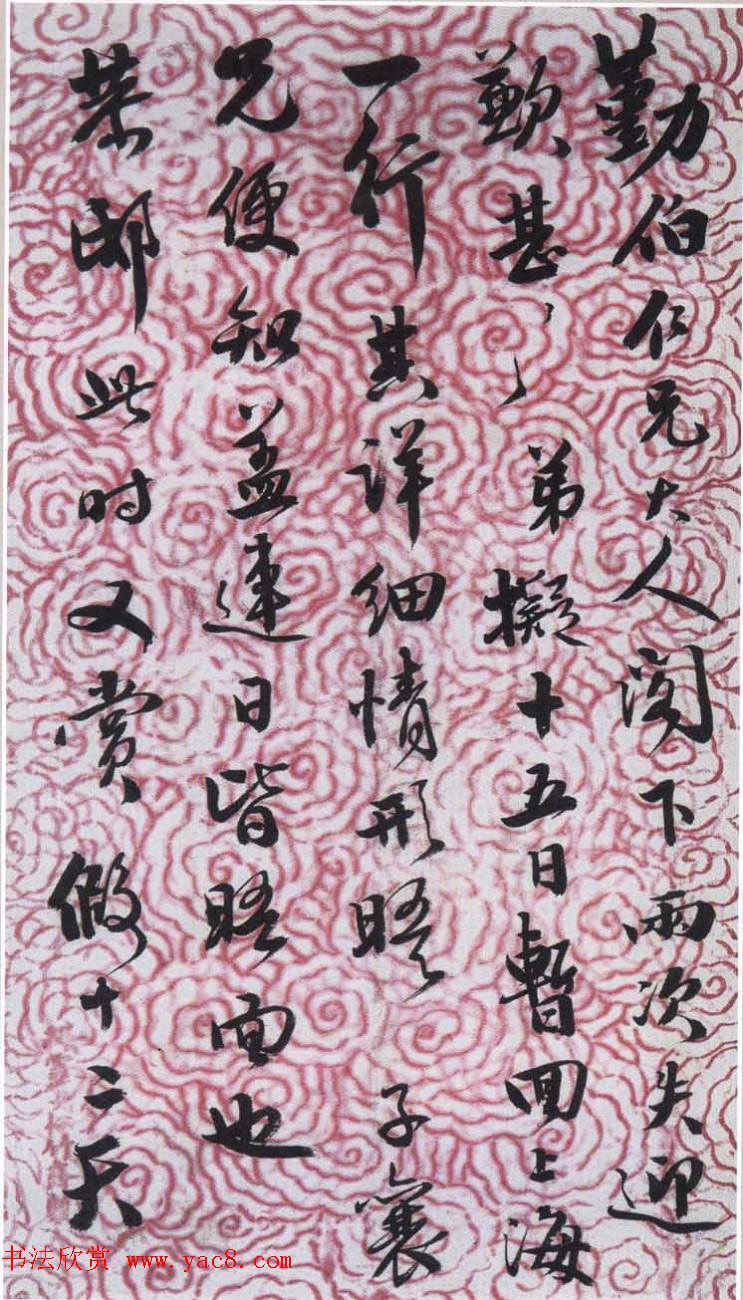 勤伯仁兄大人阁下两次失迎
歉甚々弟擬十五日暫回上海
一行其详细情形晤子襄
兄便知盖連日皆晤面也
荣邸此时又赏假十二天
书法欣赏 www.yac8.com